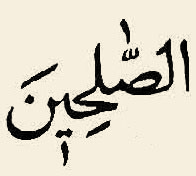 الصّٰلِحِيْنَ